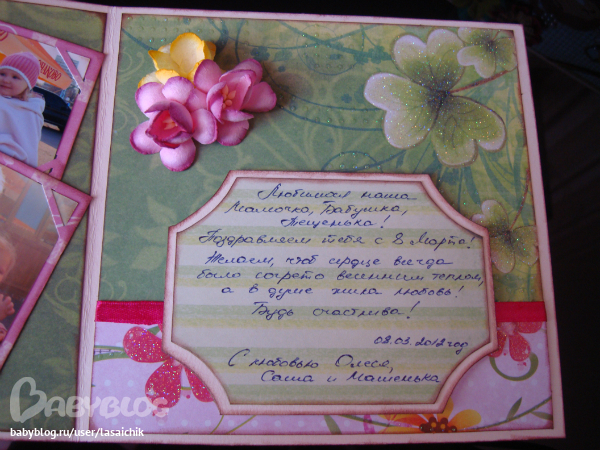 Любимая наша
Мамочка, Бабушка,
Тещенька!
Поздравляем тебя с 8 Марта!
Желаем, чтоб сердце всегда
было согрето весенним теплом,
а в душе жила любовь!
Будь счастлива!
08.03.2012 год
С любовью Олеся,
Саша и Машенька
BABYBLOG
babyblog.ru/user/lasaichik